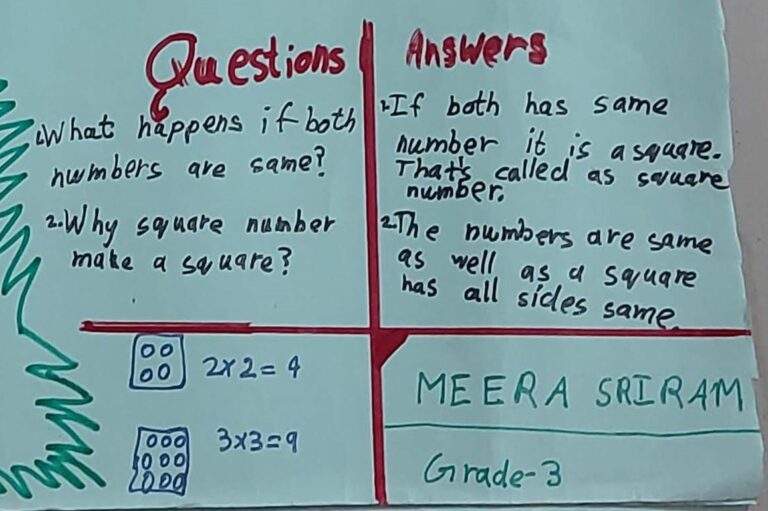 Questions
1.What happens if both
numbers are same?
2.Why square number
make a square?
Answers
1.If both has same
number it is a square.
That's called as square
number.
2The numbers are same
as well as a square
has all sides same.
2x2=4
3x3=9
MEERA SRIRAM
Grade-3